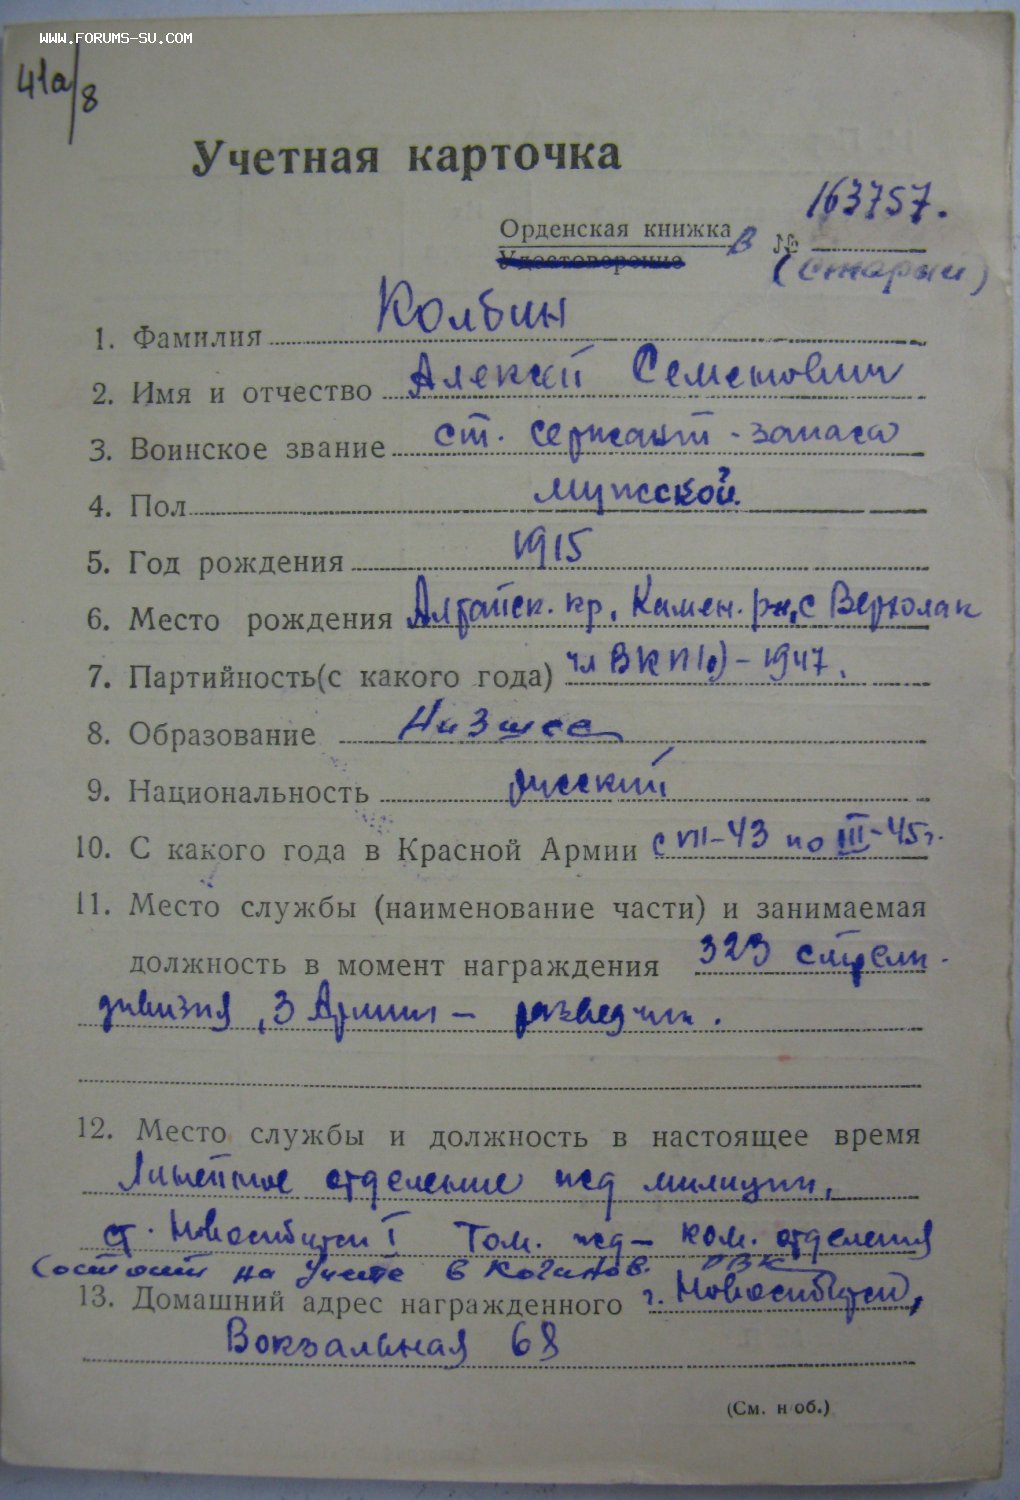 www.forums-su.com
41а/8
Учетная карточка
163757.
Орденская книжка В №
Удостоверение (старый)
1. Фамилия Колбин
2. Имя и отчество Алексей Семенович
3. Воинское звание ст. сержант - запаса
4. Пол мужской.
5. Год рождения 1915
6. Место рождения Алтайск. кр. Камен. р-н, с
7. Партийность(с какого года) чл ВКП(б) - 1947.
8. Образование Низшее
9. Национальность русский
10. С какого года в Красной Армии с VII-43 по III-45г.
11. Место службы (наименование части) и занимаемая
должность в момент награждения 323 стрелк.
дивизия, 3 Армии — разведчик.
12. Место службы и должность в настоящее время
Линейное отделение жд милиции,
ст. Новосибирск I Том. жд — ком. отделения
состоит на учете в Каганов. РВК
13. Домашний адрес награжденного г. Новосибирск,
Вокзальная 68
(См. н об.)